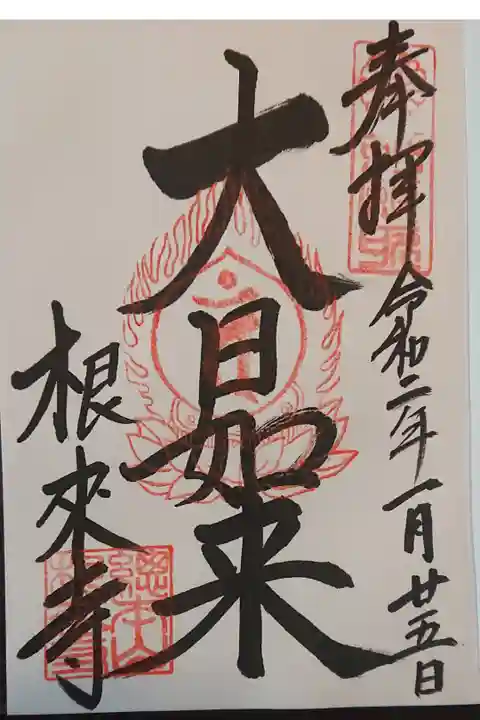 奉拝
令和二年一月廿五日
大日如来
根来寺